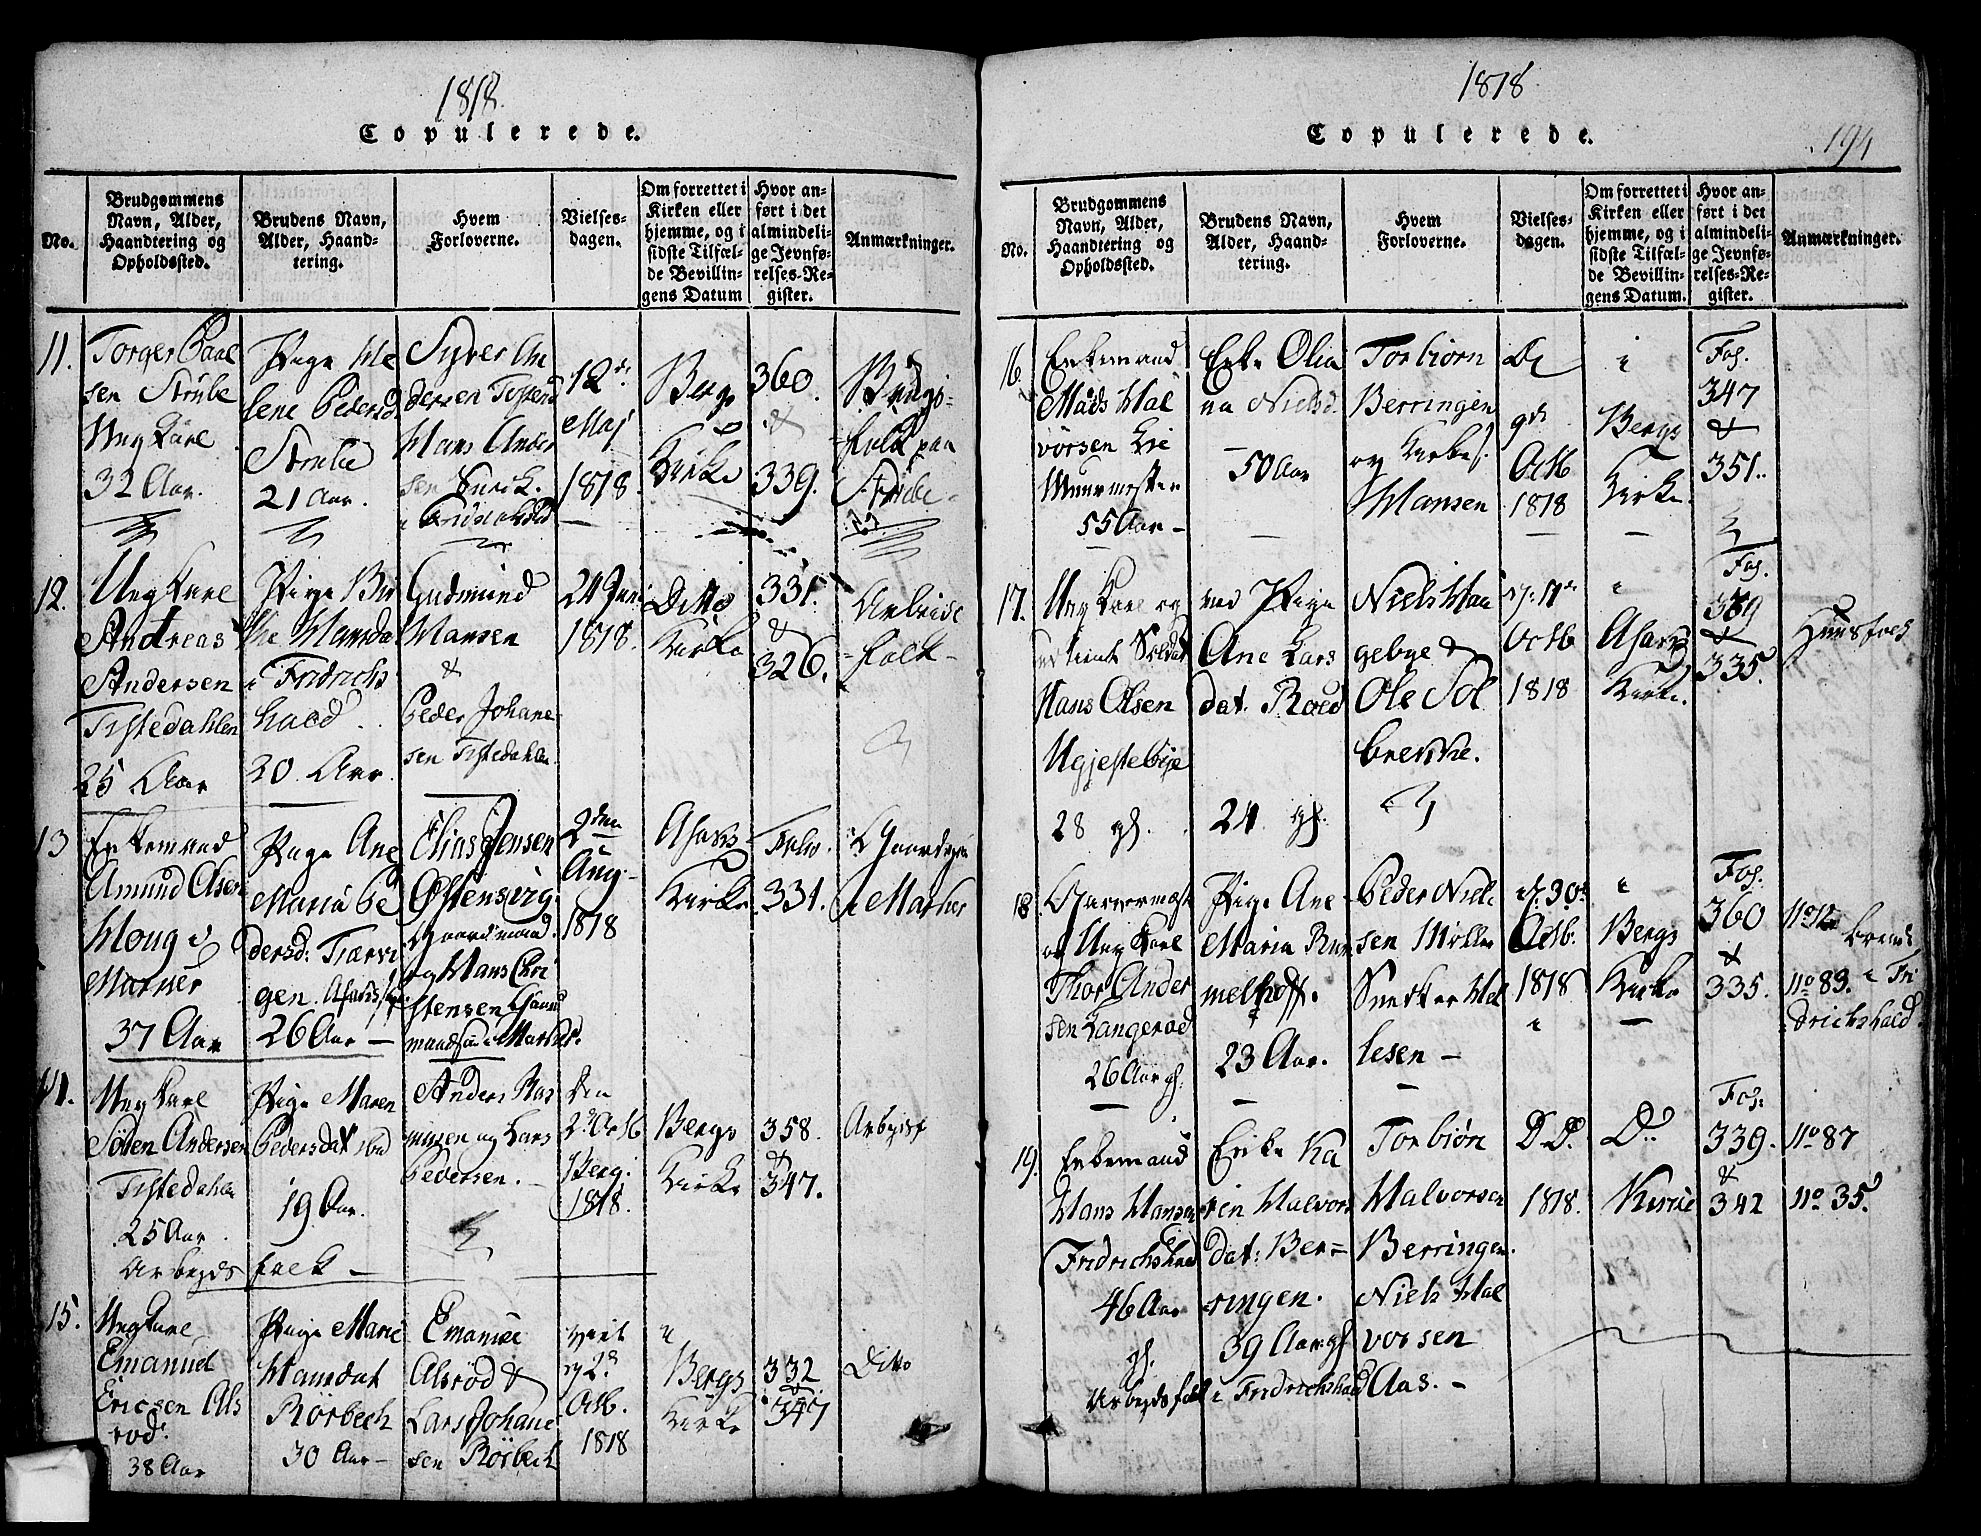 1818.
Copulerede.
No.
Brudgommens
Navn, Alder,
Haandtering og
Opholdssted.
Brudens Navn,
Alder, Haand-
tering.
Hvem
Forloverne.
Vielses-
dagen.
Om forrettet i
Kirken eller
hjemme, og i
sidste Tilfæl-
de Bevillin-
gens Datum
Hvor an-
ført i det
almindeli-
ge Jevnfø-
relses-Re-
gister.
Anmærkninger.
11.
Torger Paal
sen Strübe
Ung Karl
32 Aar.
Pige He
lene Pedersd
Strube
21 Aar.
Syver An
dersen Tistend
Hans Ander
sen
12 d.
Maj
1818.
Bergs
Kirke
360.
&
339.
Bÿgs-
folk paa
Stribe
12.
Ung Karl
Andreas
Andersen
Tistedahlen
25 Aar
Pige Bir
the Hansda
i Fridrichs
hald
20 Aar.
Gudmund
Hansen
&
Peder Johane
sen Tistedahlen
24 Juni
1818.
Ditto
Kirke
331.
&
326.
Arbeids
folk
13
Enkemand
Amund Olsen
Houg i
Marker
37 Aar
Pige Ane
Maria Pe
dersd: Tiærvi
gen.
26 Aar
Elias Jensen
Østensvig
Gaardmand
og Hans Chri
stensen Gaard
mandsøn i Marker.
2den
Aug.
1818
Asaks
Kirke
Folio.
331.
Gaardfolk
i Marker
14.
Ung Karl
Søren Andersen
Tistedahlen
25 Aar.
Arbejds
Pige Maren
Pedersdat ibd
19 Aar.
folk
Anders Ras
mussen og Lars
Pedersen.
den
2d Octb
i Berg
1818.
Bergs
Kirke
358.
&
347.
Arbejdsf
15.
Ung Karl
Emanuel
Ericsen Als
rod.
38 Aar
Pige Marie
Hansdat
Rörbech
30 Aar
Emanuel
Alsrød &
Lars Johane
sen Rörbech
viet
d 2d
Octb.
1818
Bergs
Kirke
332
&
347
Ditto
1818.
Copulerede.
194
No.
Brudgommens
Navn, Alder,
Haandtering og
Opholdssted.
Brudens Navn,
Alder, Haand-
tering.
Hvem
Forloverne.
Vielses-
dagen.
Om forrettet i
Kirken eller
hjemme, og i
sidste Tilfæl-
de Bevillin-
gens Datum.
Hvor an-
ført i det
almindeli-
ge Jevnfø-
relses-Re-
gister.
Anmærkninger.
16.
Enkemand
Mads Hal
vorsen Lie
Muurmester
55 Aar
Enke Olia
na Nielsd
50 Aar
Torbiørn
Berringen
og Kirkes.
Hansen
De
9de
Octb
1818
i
Bergs
Kirke.
Fol.
347
&
351.
17.
Ung Karl og
Soldat
Hans Olsen
Ugjestebÿe
28 gl.
ved Pige
Ane Lars
dat. Röed
24 gl.
Niels Hau
gebye &
Ole Sol
brekke.
d: 17de
Octb
1818
i
Asaks
Kirke.
Fol.
339
&
335.
Huusfolk
18.
Garvermest
og Ung Karl
Thor Ander
sen Langerød
26 Aar gl.
Pige Ane
Maria Rum
melhoff.
23 Aar.
Peder Niel
sen Møller
Snedker Hel
lesen
d. 30t
Octb.
1818
i
Bergs
Kirke
Fol.
360
&
335.
No 12
No 83. i Fri
drichshald.
19.
Enkemand
Hans Hansen
Fridrichshald
46 Aar
gl.
Arbejdsfolk i Fridrichshald
Enke Ka
ren Halvors
dat: Ber-
ringen.
39 Aar gl
Torbiørn
Halvorsen
Berringen.
Niels Hal
vorsen
Aas.
D. D.
1818.
Do
Kirke
Fol:
339.
&
342
No 87
No 35.